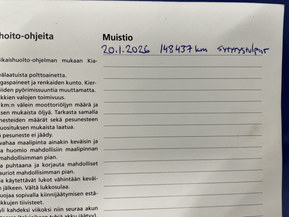 hoito-ohjeita
Muistio
20.1.2026 148437km
ikaishuolto-ohjelman mukaan Kia-
älaatuista polttoainetta.
gaspaineet ja renkaiden kunto. Kier-
iden pyörimissuuntia muuttamatta.
kkien valojen toimivuus.
km:n välein moottoriöljyn määrä ja
ksen mukaista öljyä. Tarkasta samalla
nesteiden määrät sekä pesunesteen
uosituksen mukaista laatua.
pesuneste ei jäädy.
vahaa maalipinta ainakin keväisin ja
a huomio mahdollisiin maalipinnan
mahdollisimman pian.
a puhtaana ja korjauta mahdolliset
auriot mahdollisimman pian.
a käytettävät lukot vähintään keväi-
jälkeen. Vältä lukkosulaa.
uojaa sopivalla kiinnijäätymisen estä-
kkujen tiivisteet.
yli kahdeksi viikoksi niin seuraa akun